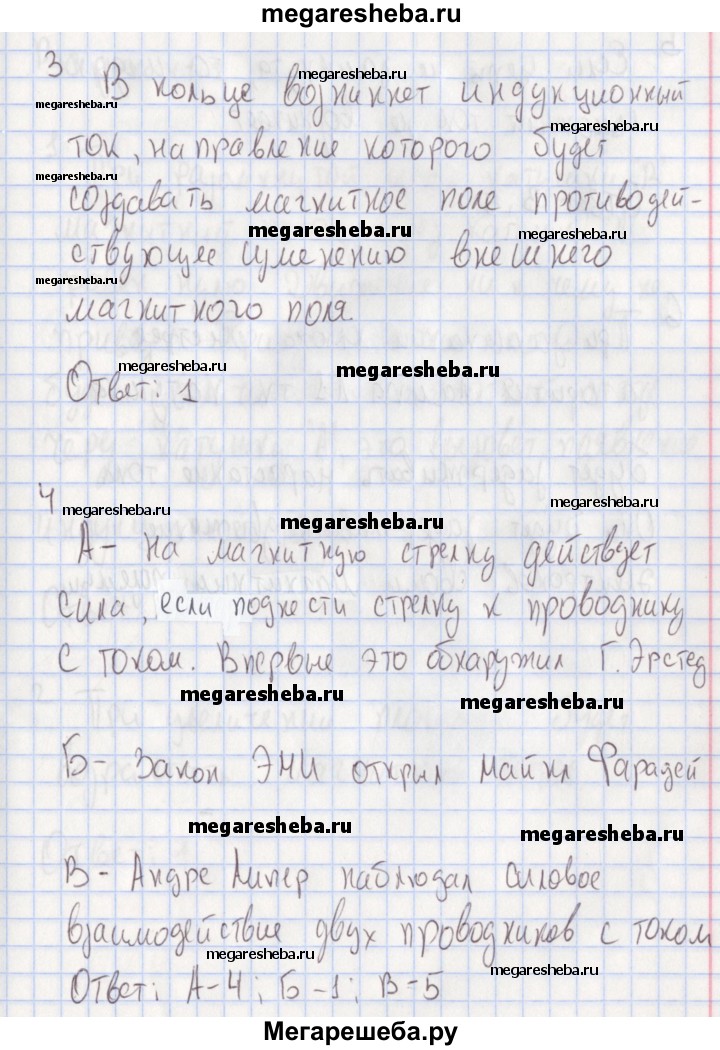 megaresheba.ru
3 В кольце возникнет индукционный
megaresheba.ru
megaresheba.ru
ток, направление которого будет
megaresheba.ru
megaresheba.ru
создавать магнитное поле противодей-
megaresheba.ru
megaresheba.ru
ствующее изменению внешнего
megaresheba.ru
магнитного поля.
megaresheba.ru
megaresheba.ru
Ответ: 1
4
megaresheba.ru
megaresheba.ru
megaresheba.ru
А - на магнитную стрелку действует
сила, если поднести стрелку к проводнику
с током. Впервые это обнаружил Г. Эрстед
megaresheba.ru
megaresheba.ru
Б - Закон ЭМИ открыл Майкл Фарадей
megaresheba.ru
megaresheba.ru
В - Андре Ампер наблюдал силовое
взаимодействие двух проводников с током
megaresheba.ru
megaresheba.ru
Ответ: А-4; Б-1; В-5
Мегарешеба.ру